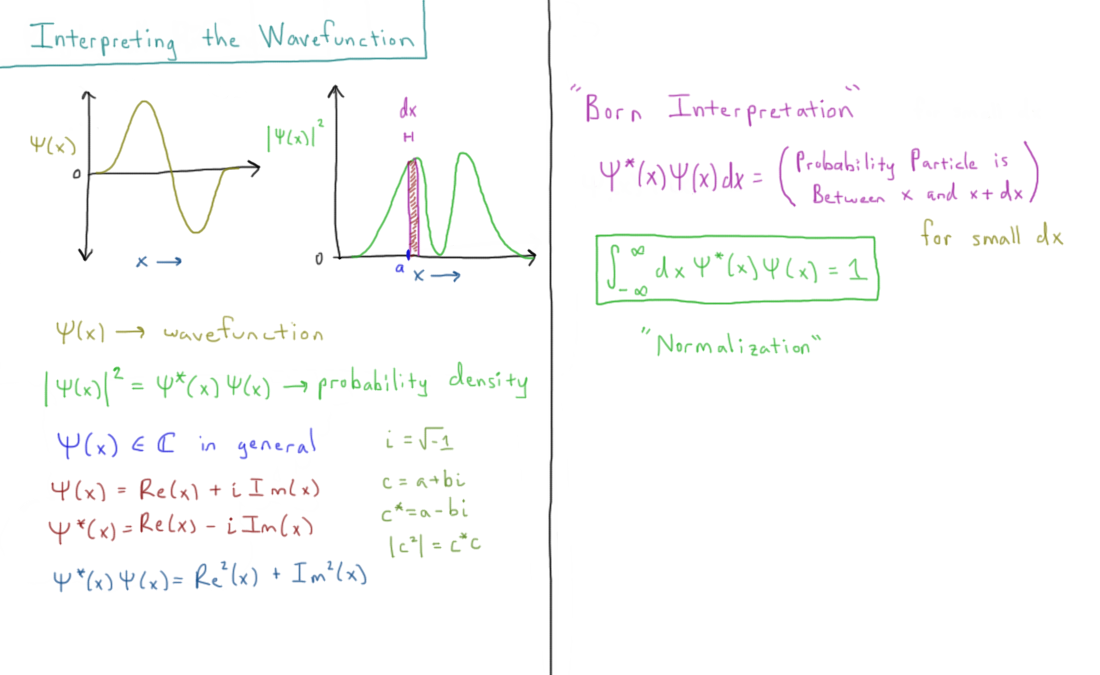 Interpreting the Wavefunction
Ψ(x)
0
x →
|Ψ(x)|²
dx
0
a
x →
Ψ(x) → wavefunction
|Ψ(x)|² = Ψ*(x) Ψ(x) → probability density
Ψ(x) ∈ ℂ in general
Ψ(x) = Re(x) + i Im(x)
Ψ*(x) = Re(x) - i Im(x)
Ψ*(x) Ψ(x) = Re²(x) + Im²(x)
i = √-1
c = a+bi
c* = a-bi
|c²| = c*c
"Born Interpretation"
Ψ*(x)Ψ(x)dx = (Probability Particle is
Between x and x+dx)
for small dx
∫_{-∞}^{∞} dx Ψ*(x)Ψ(x) = 1
"Normalization"